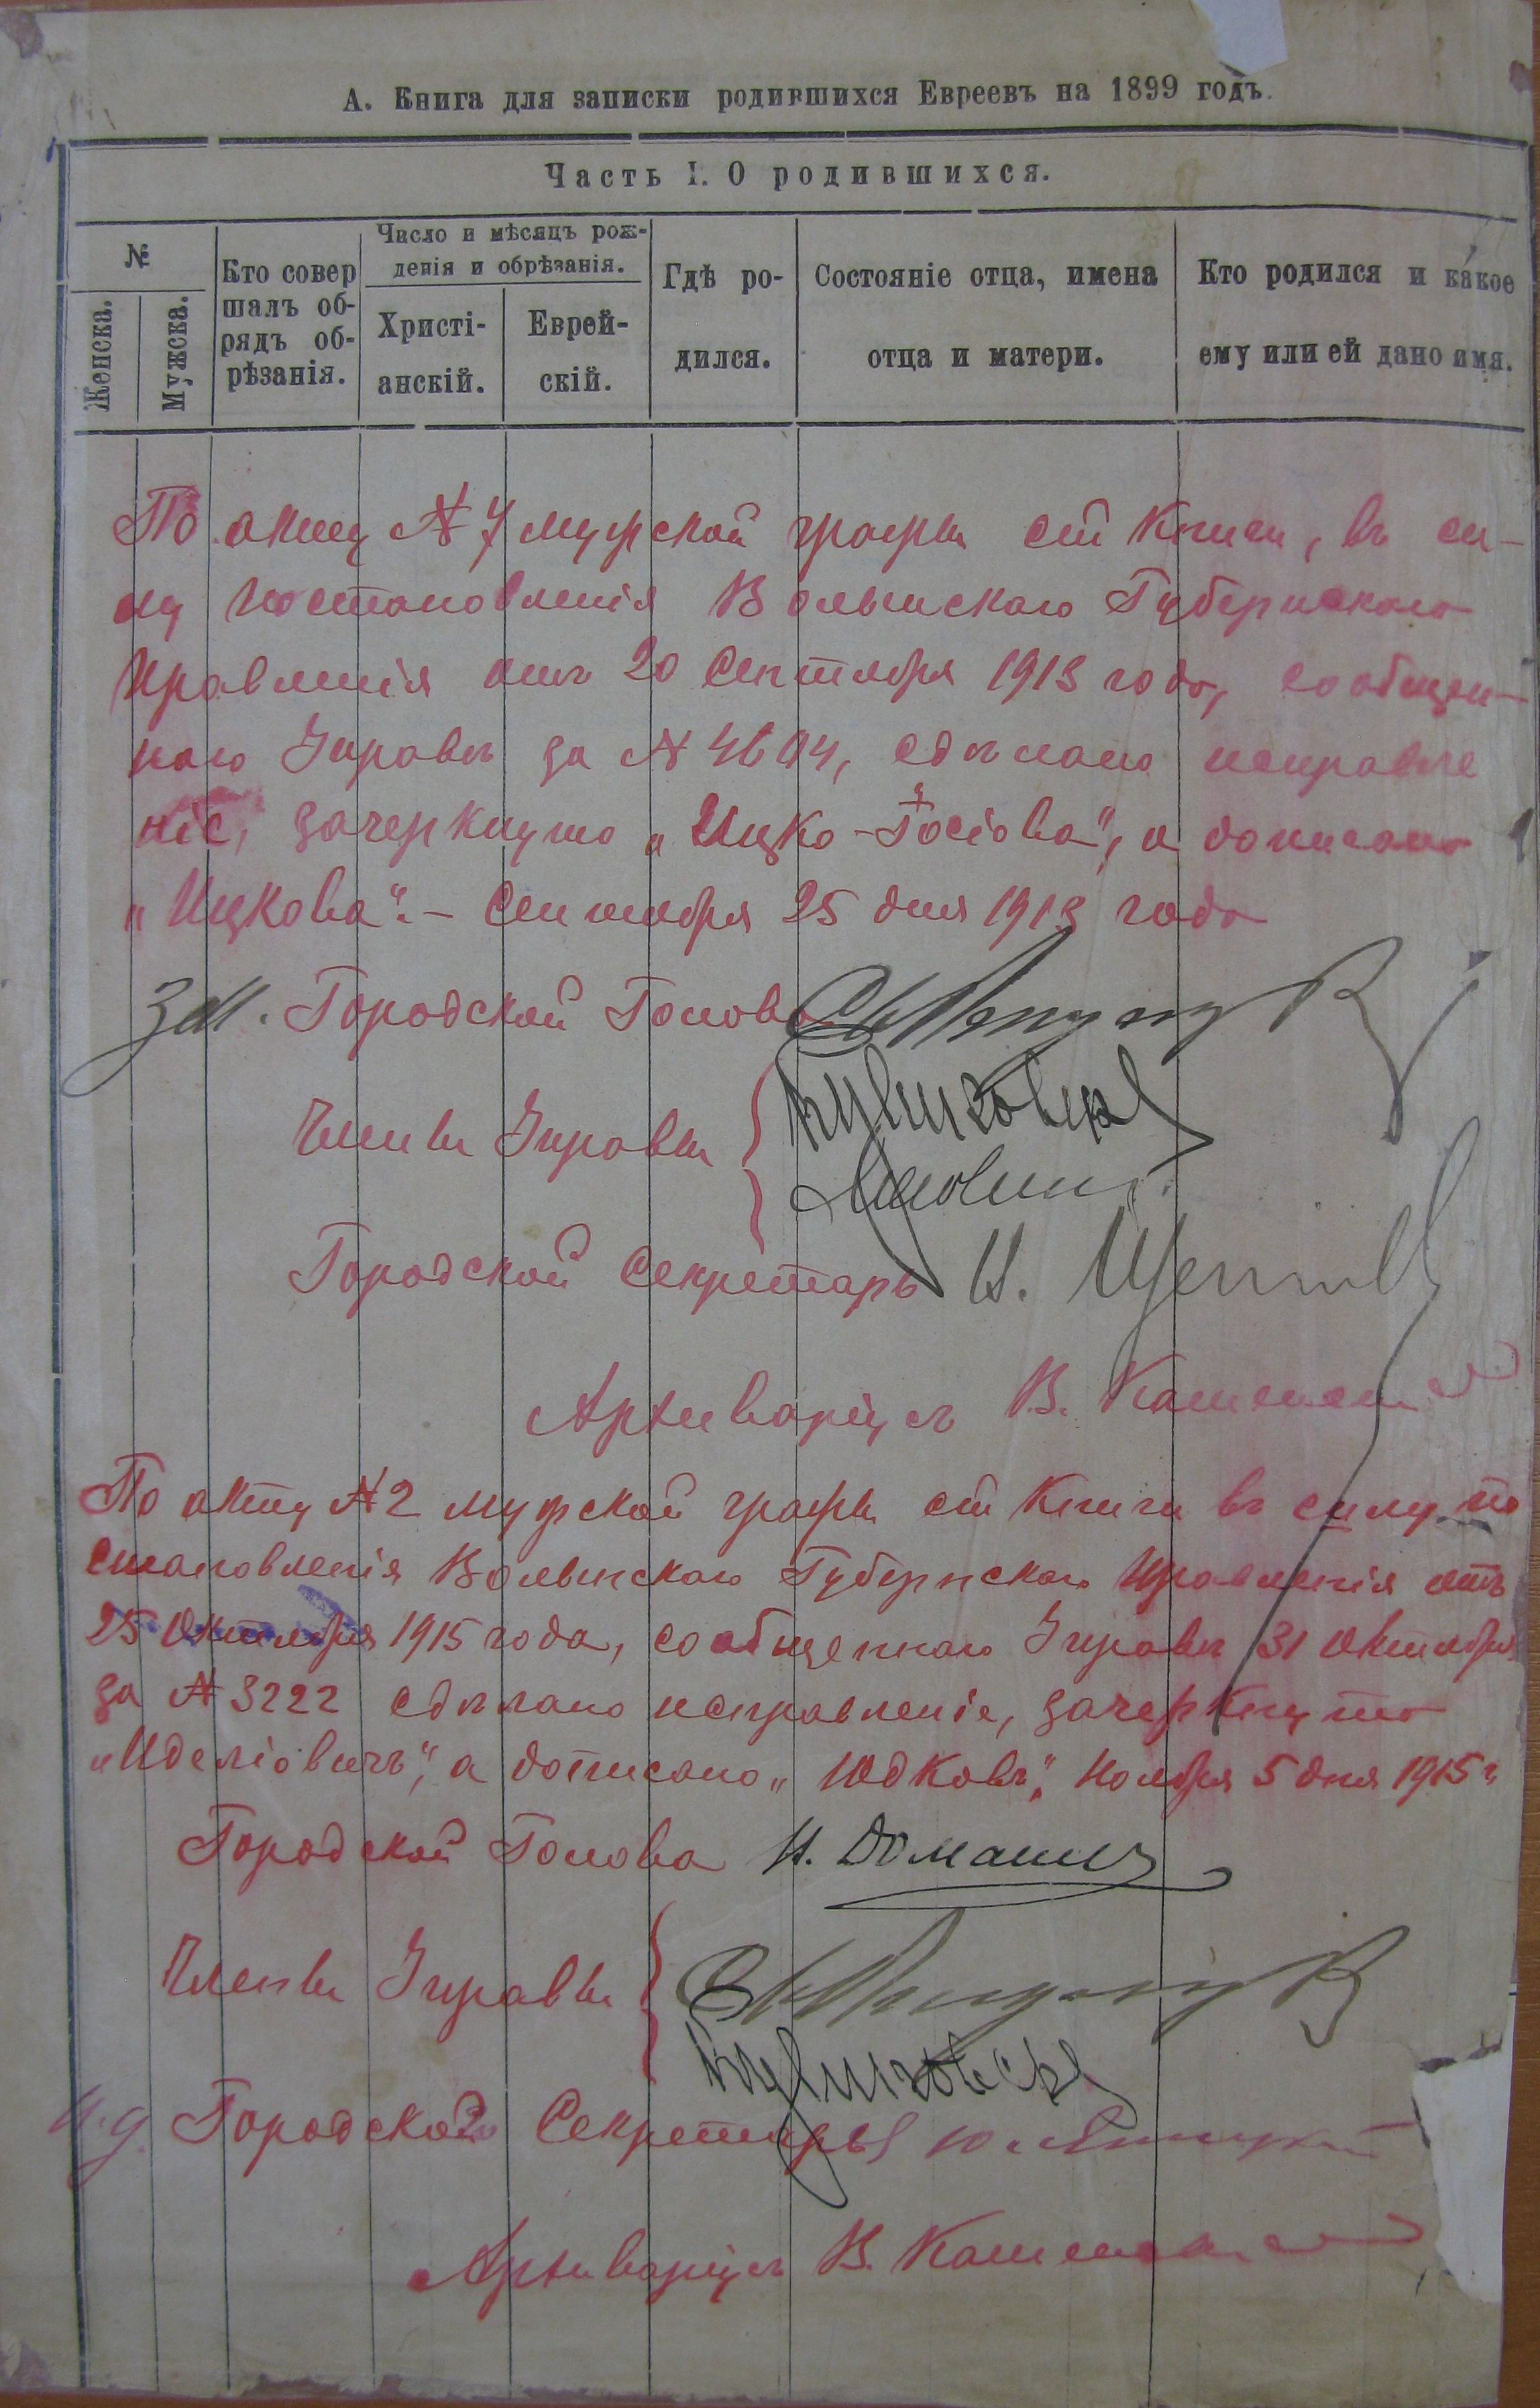 А. Книга для записки родившихся Евреевъ на 1899 годъ.
Часть I. О родившихся.
№
Женска.
Мужска.
Кто совер
шалъ об-
рядъ об-
рѣзанія.
Число и мѣсяцъ рож-
денія и обрѣзанія.
Христі-
анскій.
Еврей-
скій.
Гдѣ ро-
дился.
Состояніе отца, имена
отца и матери.
Кто родился и какое
ему или ей дано имя.
По акту № 7 мужской графы сей книги, въ си-
лу постановленія Волынскаго Губернскаго
Правленія отъ 20 Сентября 1913 года, сообщен-
наго Управѣ за № 4604, сдѣлано исправле
ніе, зачеркнуто „Ицко-Іосіова", а дописано
„Ицкова".- Сентября 25 дня 1913 года
Зам. Городской Голова
Члены Управы
Городской Секретарь И.
Архиваріусъ В.
По акту № 2 мужской графы сей книги въ силу по
становленія Волынскаго Губернскаго Правленія отъ
25 Октября 1915 года, сообщеннаго Управѣ 31 Октября
за № 3222 сдѣлано исправленіе, зачеркнуто
„Иделіовичъ", а дописано „Юдковъ", Ноября 5 дня 1915 г.
Городской Голова И.
Члены Управы
И. д. Городского Секретаря
Архиваріусъ В.